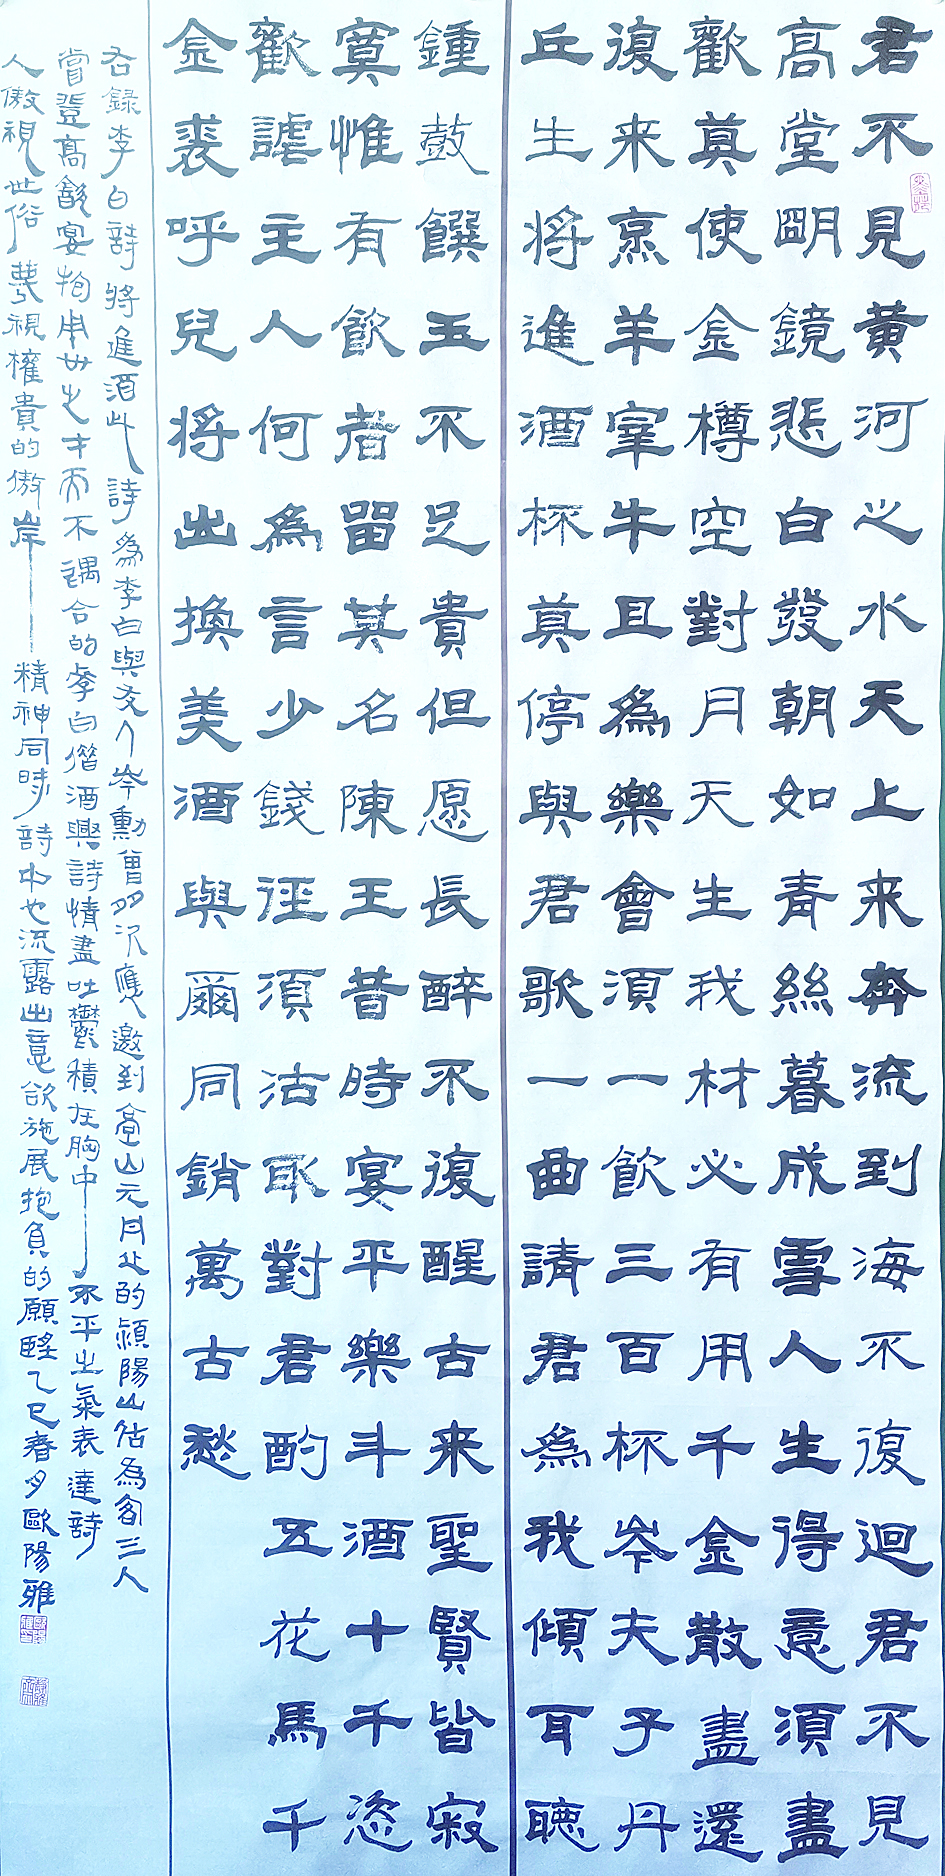 君不見黄河之水天上来奔流到海不復迴君不見
高堂明鏡悲白發朝如青絲暮成雪人生得意須盡
歡莫使金樽空對月天生我材必有用千金散盡還
復来烹羊宰牛且為樂會須一飲三百杯岑夫子丹
丘生将進酒杯莫停與君歌一曲請君為我傾耳聴
鍾鼓饌玉不足貴但愿長醉不復醒古来聖賢皆寂
寞惟有飲者留其名陳王昔時宴平樂斗酒十千恣
歡謔主人何為言少錢徑須沽取對君酌五花馬千
金裘呼兒将出換美酒與爾同銷萬古愁
右録李白詩将進酒此詩為李白與友人岑勳曾多次應邀到嵩山元丹丘的潁陽山居為客三人
嘗登高飲宴抱用世之才而不遇合的李白借酒興詩情盡吐鬱積在胸中不平之氣表達詩
人傲視世俗蔑視權貴的傲岸精神同時詩中也流露出意欲施展抱負的願望乙巳春月歐陽雅